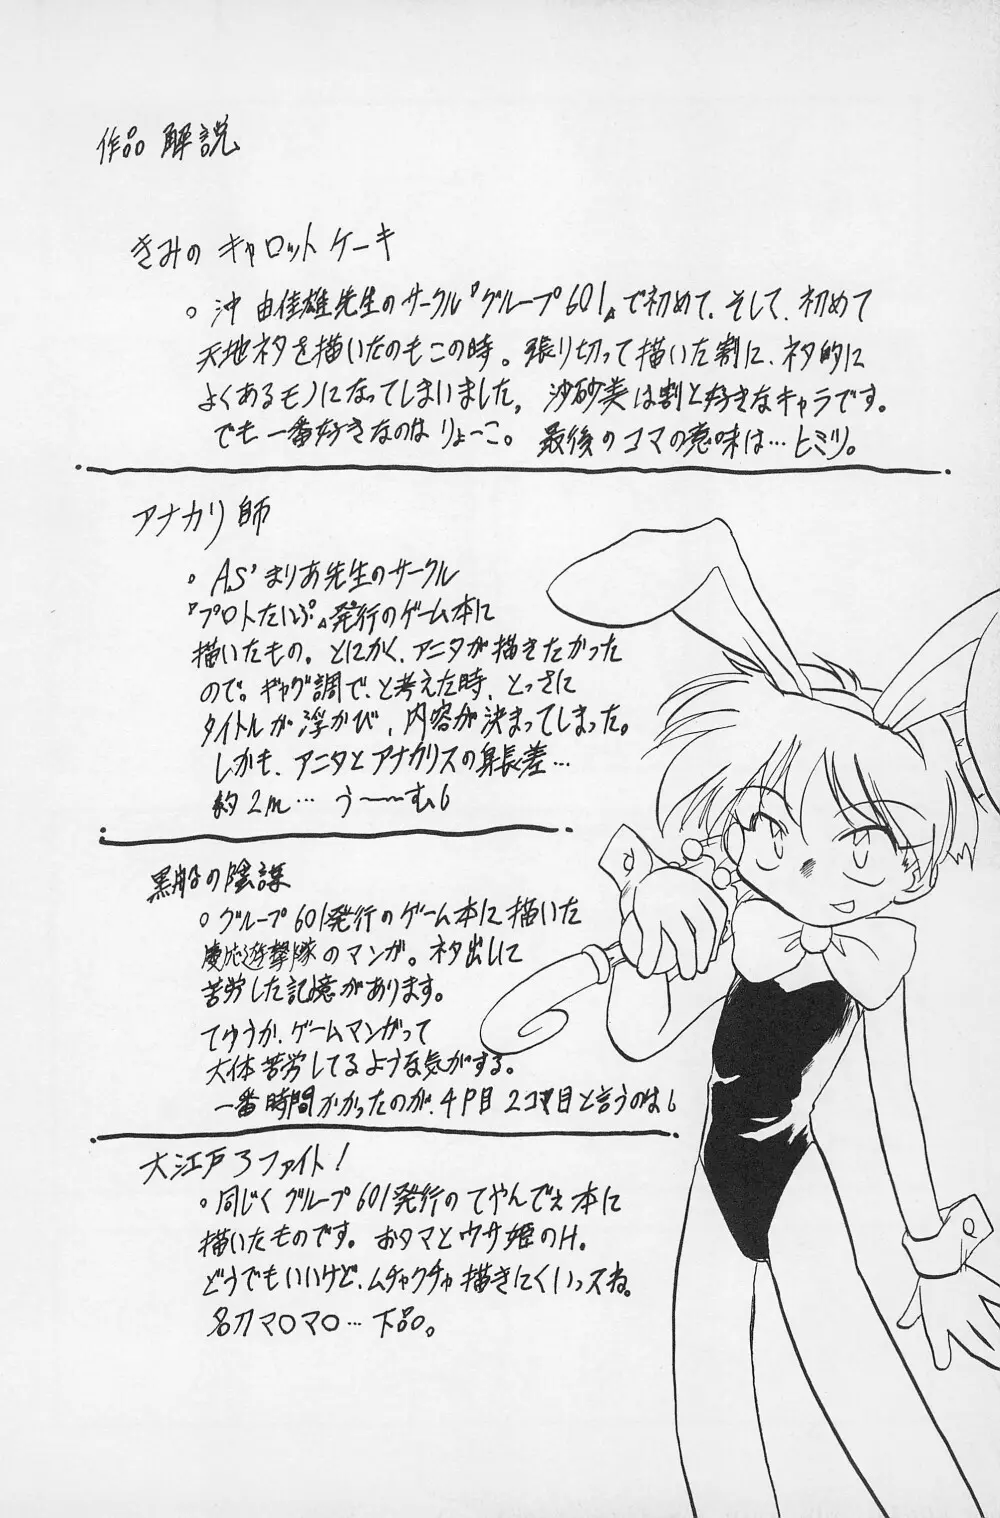 作品解説
きみのキャロットケーキ
○沖由佳雄先生のサークル『グループ601』で初めて、そして、初めて
天地ネタを描いたのもこの時。張り切って描いた割に、ネタ的に
よくあるモノになってしまいました。沙砂美は割と好きなキャラです。
でも一番好きなのはりょーこ。最後のコマの意味は…ヒミツ。
アナカリ師
○AS'まりあ先生のサークル
『プロトたいぷ』発行のゲーム本に
描いたもの。とにかく、アニタが描きたかった
ので。ギャグ調で、と考えた時、とっさに
タイトルが浮かび、内容が決まってしまった。
しかも、アニタとアナカリスの身長差…
約2m… う〜〜む。
黒船の陰謀
○グループ601発行のゲーム本に描いた
慶応遊撃隊のマンガ。ネタ出しに
苦労した記憶があります。
てゆうか、ゲームマンガって
大体苦労してるような気がする。
一番時間かかったのが、4P目2コマ目と言うのは。
大江戸ろファイト!
○同じくグループ601発行のてやんでえ本に
描いたものです。おタマとウサ姫のH。
どうでもいいけど、ムチャクチャ描きにくいっスね。
名刀マ○マ○…下品。